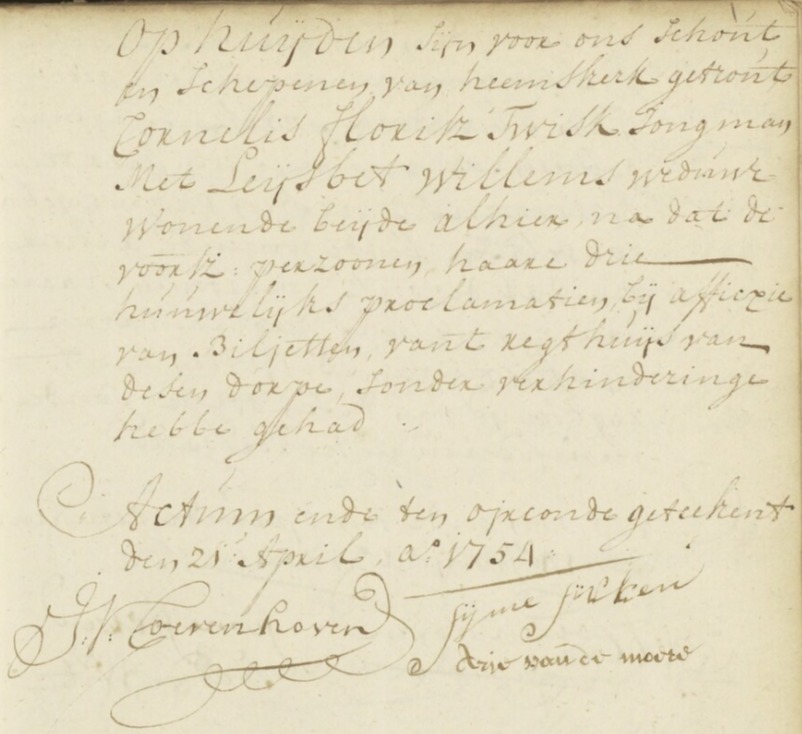 Op huijden sijn voor ons Schout
en Schepenen van heemskerk getrout
Cornelis floritz Twisk Jongman
Met Leijsbet Willems weduwe
wonende beijde alhier, na dat de
voortz: perzoonen haare drie
huuwelijks proclamatien, bij affictie
van Biljetten, vant regthuijs van
desen dorpe, sonder verhinderinge
hebbe gehad.
Actum ende ten oirconde geteekent
den 21 April, a.o 1754
J: V: Coevenhoven
Sijme
Arie vande moere